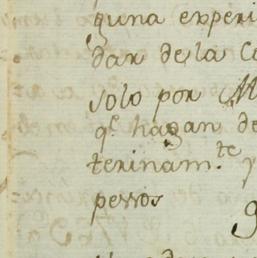 guna experi
dar de la C
solo por M
q.e hagan de
terinam.te y
perros